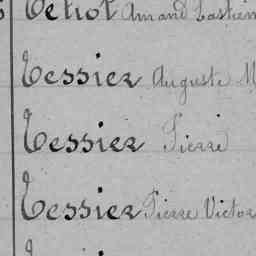 Tetiot Amand Bastien
Tessier Auguste M
Tessier Pierre
Tessier Pierre Victor